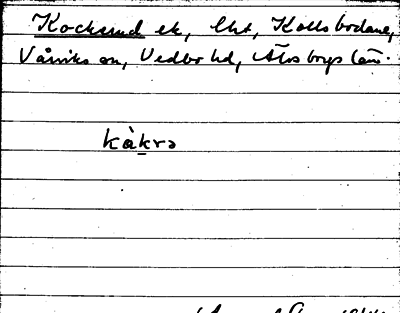 Kocksrud ek, lht, Kolls bodane,
Vårviks sn, Vedbo hd, Älvsborgs län.
kåkrə